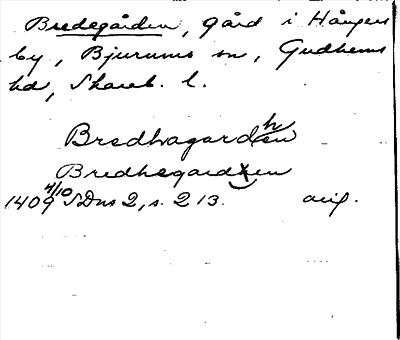 Bredegården, gård i Hångers
by, Bjurums sn, Gudhems
hd, Skarab. l.
Bredhagardhen
Bredhegardxen
1409 4/10 SDns 2, s. 213. orig.